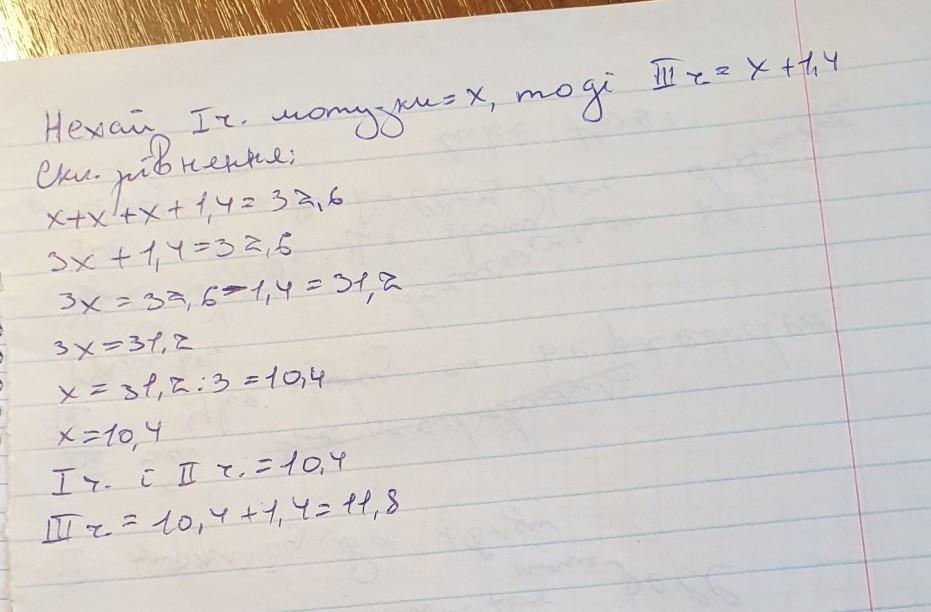 Нехай I ч. мотузки = x, тоді III ч = x + 1,4
Скл. рівнення:
x+x+x+1,4=32,6
3x+1,4=32,6
3x=32,6-1,4=31,2
3x=31,2
x=31,2:3=10,4
x=10,4
I ч. і II ч.=10,4
III ч=10,4+1,4=11,8